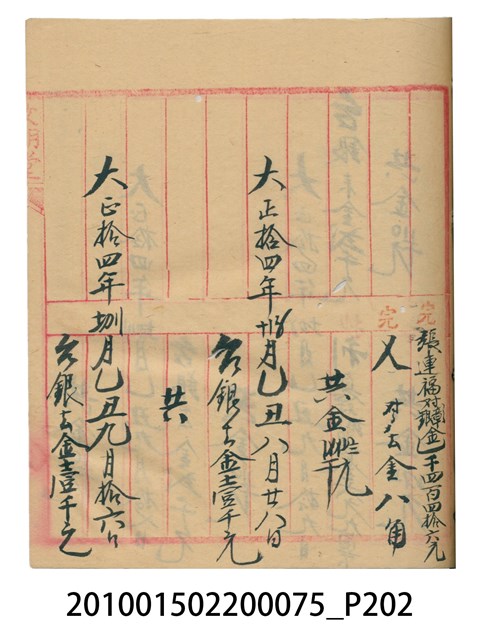 完 張連福對銀金 千四百四拾六元
完 又 對去金八角
共金
大正拾四年 月乙丑八月廿八日
台銀去金壹千元
共
大正拾四年 月乙丑九月拾六日
台銀去金壹千元
201001502200075_P202